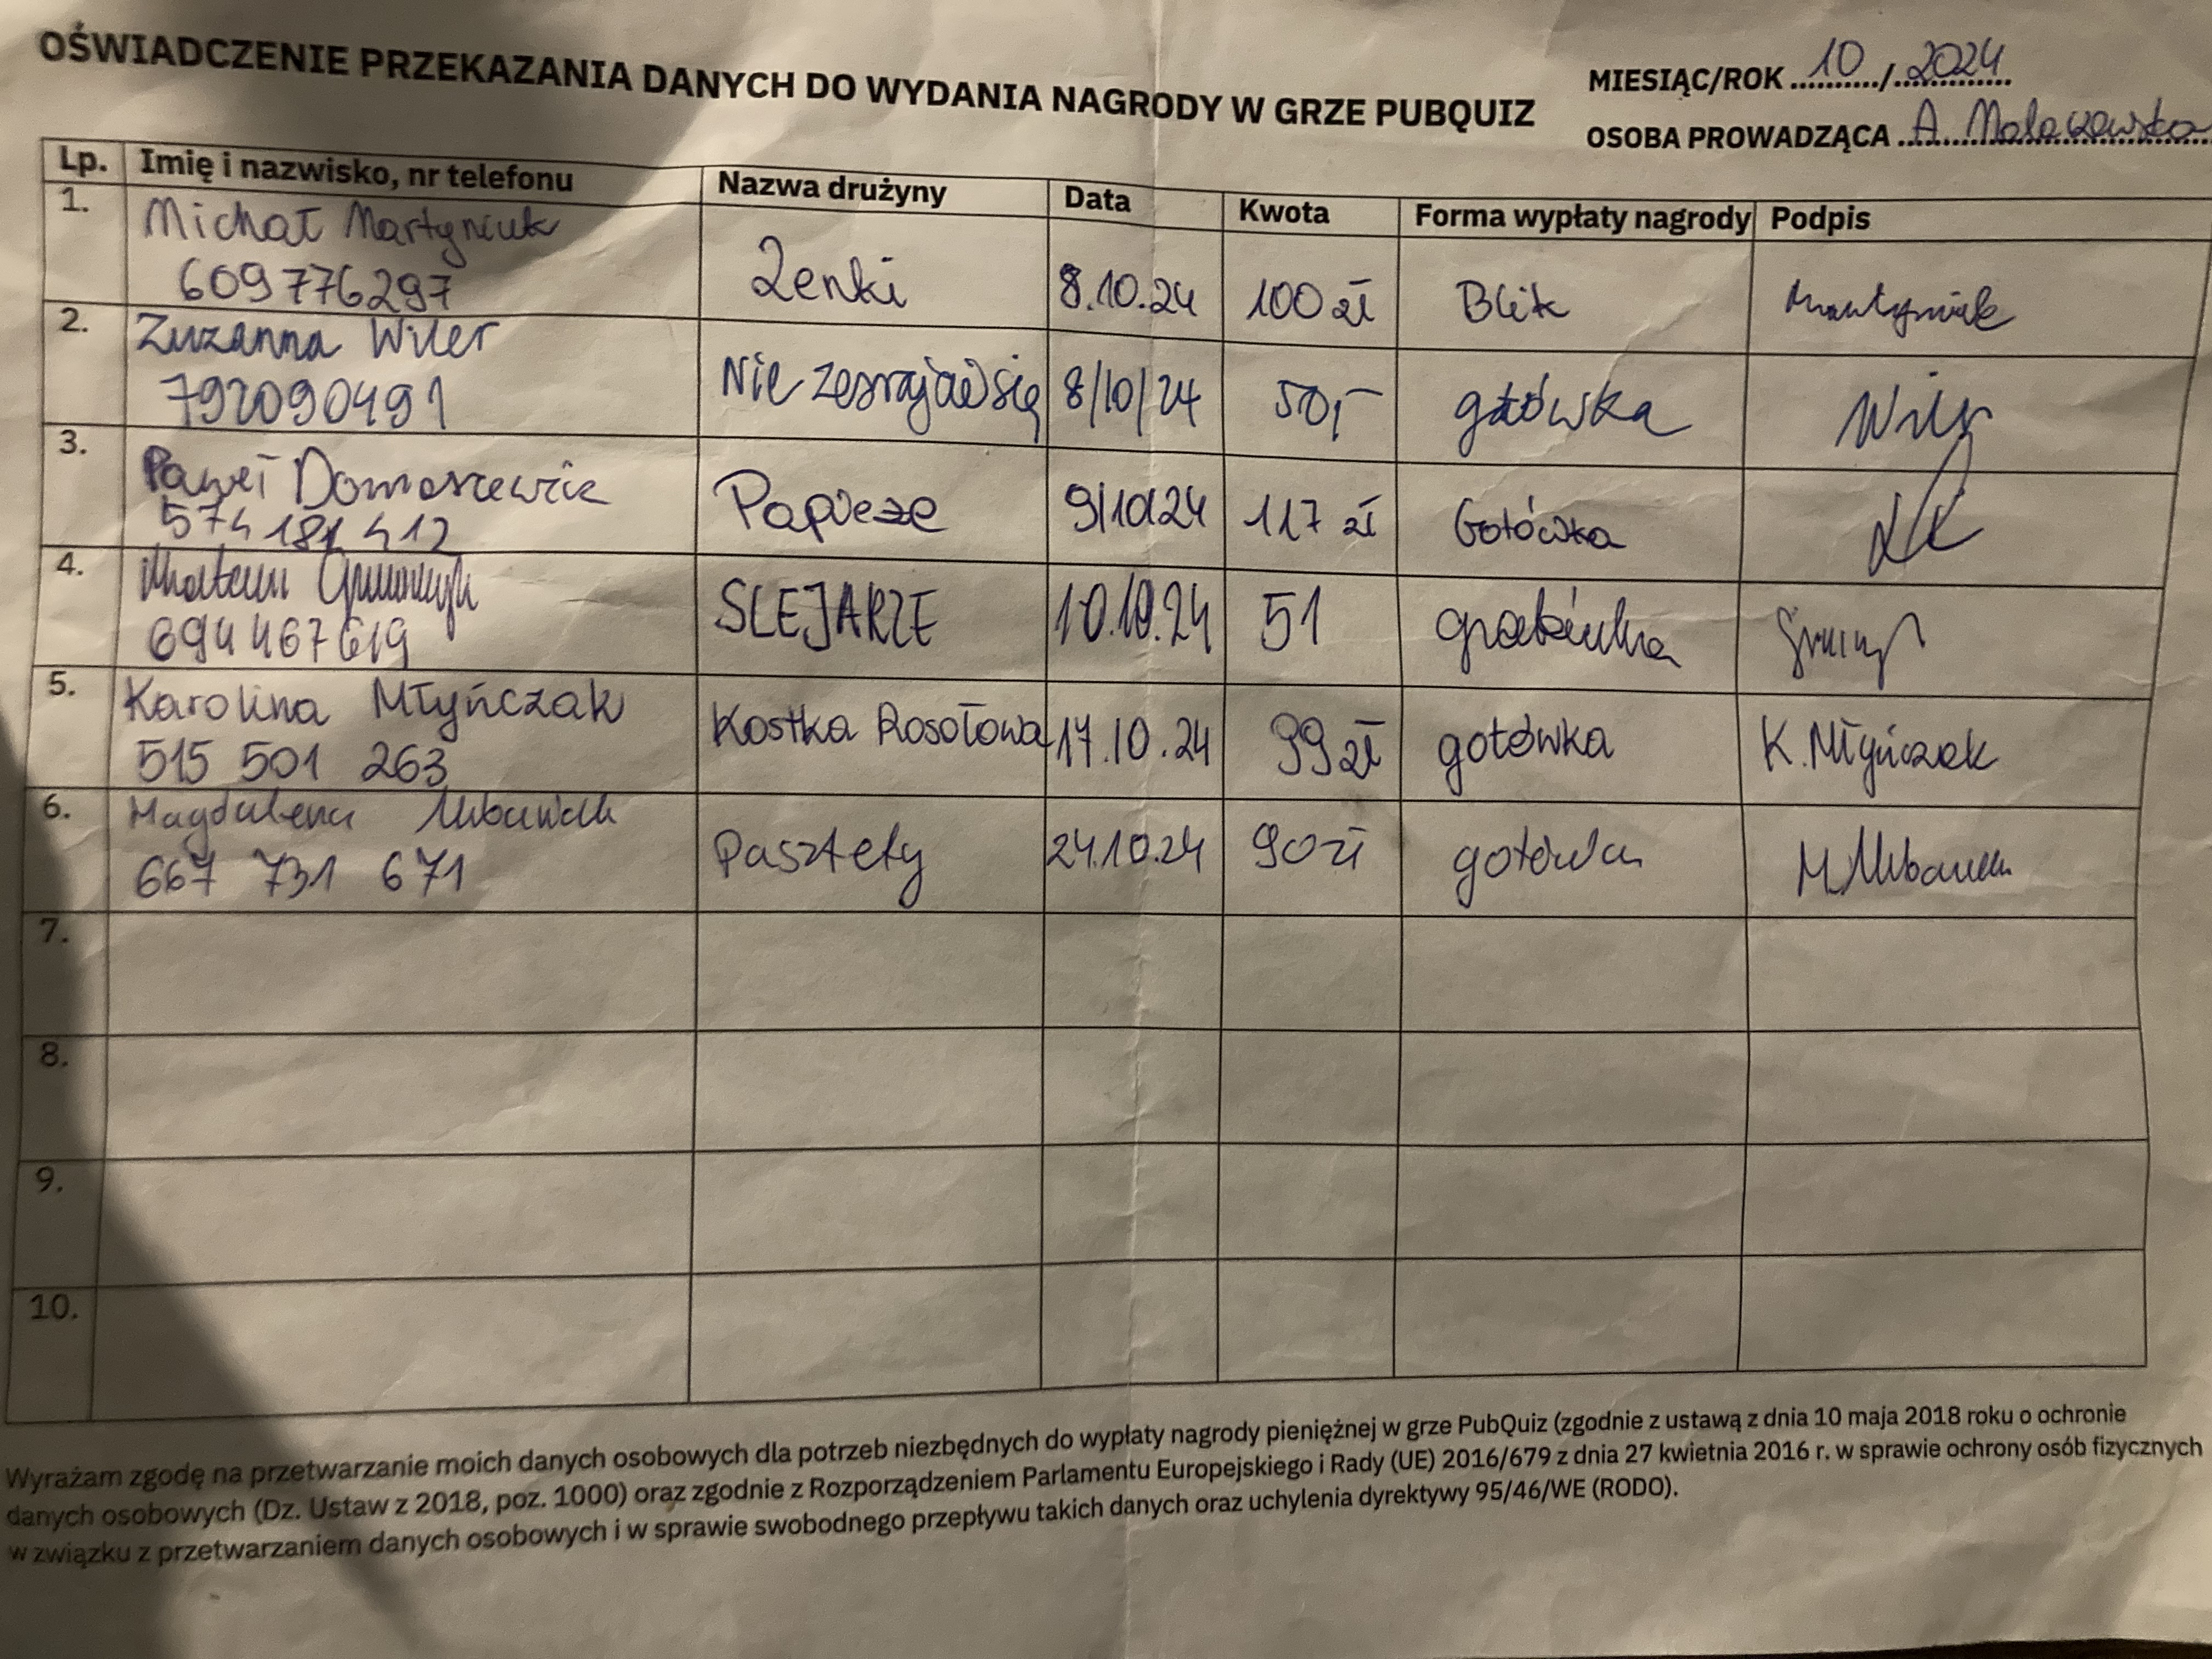 OŚWIADCZENIE PRZEKAZANIA DANYCH DO WYDANIA NAGRODY W GRZE PUBQUIZ
MIESIĄC/ROK 10/2024
OSOBA PROWADZĄCA A. Malaczewska
Lp. Imię i nazwisko, nr telefonu Nazwa drużyny Data Kwota Forma wypłaty nagrody Podpis
1. Michał Martyniuk
609776297 Zenki 8.10.24 100 zł Blik Martyniuk
2. Zuzanna Wiler
792090491 Nie zesrajcie się 8/10/24 50,- gotówka Wiler
3. Paweł Domaszewicz
574 181 412 Papieże 9/10/24 117 zł Gotówka
4.
694 467 619 SLEJARZE 10.10.24 51
5. Karolina Młyńczak
515 501 263 Kostka Rosołowa 17.10.24 99 zł gotówka K. Młyńczak
6. Magdalena
667 731 671 Pasztety 24.10.24 90 zł gotówka M.
7.
8.
9.
10.
Wyrażam zgodę na przetwarzanie moich danych osobowych dla potrzeb niezbędnych do wypłaty nagrody pieniężnej w grze PubQuiz (zgodnie z ustawą z dnia 10 maja 2018 roku o ochronie
danych osobowych (Dz. Ustaw z 2018, poz. 1000) oraz zgodnie z Rozporządzeniem Parlamentu Europejskiego i Rady (UE) 2016/679 z dnia 27 kwietnia 2016 r. w sprawie ochrony osób fizycznych
w związku z przetwarzaniem danych osobowych i w sprawie swobodnego przepływu takich danych oraz uchylenia dyrektywy 95/46/WE (RODO).